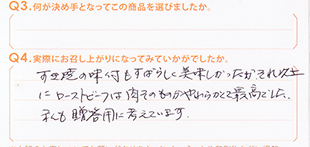 Q3.何が決め手となってこの商品を選びましたか。
Q4.実際にお召し上がりになってみていかがでしたか。
の味付もすばらしく美味しかったがそれ以上
にローストビーフは肉そのものがやわらかくて最高でした。
私も贈答用に考えています。